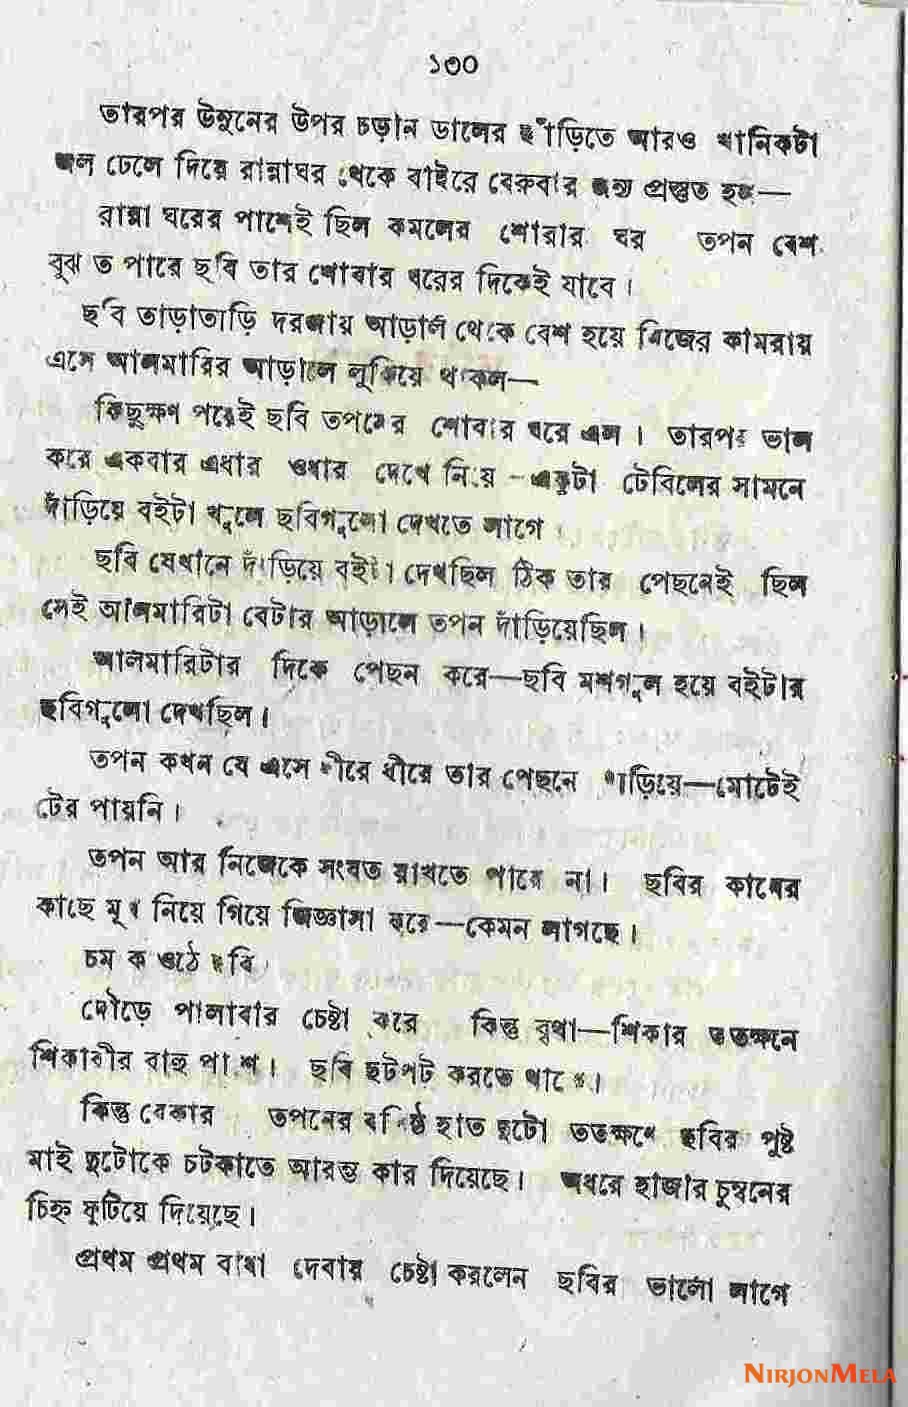 ১৩০
তারপর উনুনের উপর চড়ান ডালের হাঁড়িতে আরও খানিকটা
জল ঢেলে দিয়ে রান্নাঘর থেকে বাইরে বেরুবার জন্য প্রস্তুত হল—
রান্না ঘরের পাশেই ছিল কমলের শোবার ঘর তপন বেশ
বুঝ ত পারে ছবি তার শোবার ঘরের দিকেই যাবে।
ছবি তাড়াতাড়ি দরজায় আড়াল থেকে বেশ হয়ে নিজের কামরায়
এসে আলমারির আড়ালে লুকিয়ে থাকল—
কিছুক্ষণ পরেই ছবি তপনের শোবার ঘরে এল। তারপর ভাল
করে একবার এধার ওধার দেখে নিয়ে - একটা টেবিলের সামনে
দাঁড়িয়ে বইটা খুলে ছবিগুলো দেখতে লাগে।
ছবি যেখানে দাঁড়িয়ে বইটা দেখছিল ঠিক তার পেছনেই ছিল
সেই আলমারিটা যেটার আড়ালে তপন দাঁড়িয়েছিল।
আলমারিটার দিকে পেছন করে—ছবি মশগুল হয়ে বইটার
ছবিগুলো দেখছিল।
তপন কখন যে এসে ধীরে ধীরে তার পেছনে দাড়িয়ে—মোটেই
টের পায়নি।
তপন আর নিজেকে সংযত রাখতে পারে না। ছবির কানের
কাছে মুখ নিয়ে গিয়ে জিজ্ঞাসা করে—কেমন লাগছে।
চম ক ওঠে ছবি
দৌড়ে পালাবার চেষ্টা করে কিন্তু বৃথা—শিকার ততক্ষনে
শিকারীর বাহু পাশে। ছবি ছটপট করতে থাকে।
কিন্তু বেকার তপনের বলিষ্ঠ হাত দুটো ততক্ষণে ছবির পুষ্ট
মাই দুটোকে চটকাতে আরম্ভ কার দিয়েছে। অধরে হাজার চুম্বনের
চিহ্ন ফুটিয়ে দিয়েছে।
প্রথম প্রথম বাধা দেবার চেষ্টা করলেন ছবির ভালো লাগে
NIRJONMELA